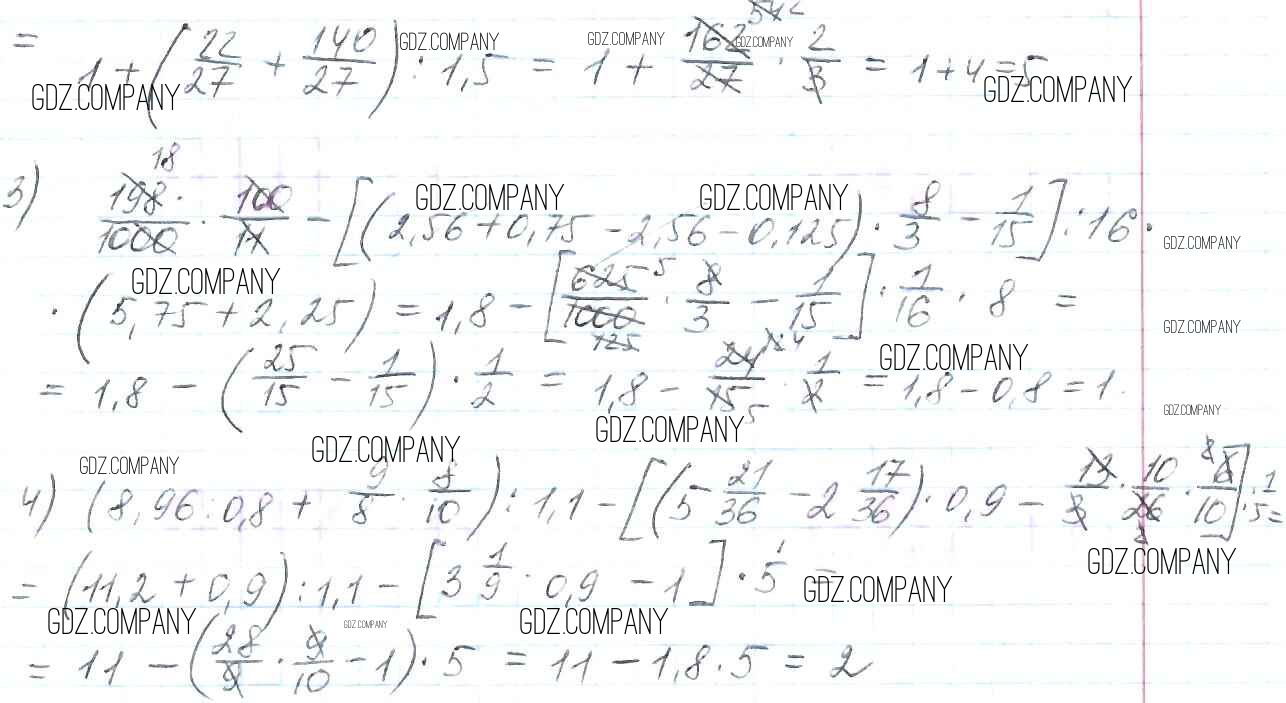 =
1 + (22/27 + 140/27) : 1,5 = 1 + 162/27 · 2/3 = 1 + 4 = 5
GDZ.COMPANY GDZ.COMPANY GDZ.COMPANY GDZ.COMPANY GDZ.COMPANY
18
3) 198/1000 · 100/11 − [(2,56 + 0,75 − 2,56 − 0,125) · 8/3 − 1/15] : 16 ·
GDZ.COMPANY GDZ.COMPANY GDZ.COMPANY
· (5,75 + 2,25) = 1,8 − [625 5/1000 125 · 8/3 − 1/15] · 1/16 · 8 =
GDZ.COMPANY GDZ.COMPANY
= 1,8 − (25/15 − 1/15) · 1/2 = 1,8 − 24/15 5 · 1/2 = 1,8 − 0,8 = 1
GDZ.COMPANY GDZ.COMPANY GDZ.COMPANY GDZ.COMPANY GDZ.COMPANY
4) (8,96 : 0,8 + 9/8 · 8/10) : 1,1 − [(5 21/36 − 2 17/36) · 0,9 − 13/3 · 10/26 2 · 6 2/10] : 1/5 =
GDZ.COMPANY
= (11,2 + 0,9) : 1,1 − [3 1/9 · 0,9 − 1] · 5 =
GDZ.COMPANY GDZ.COMPANY GDZ.COMPANY GDZ.COMPANY
= 11 − (28/9 · 9/10 − 1) · 5 = 11 − 1,8 · 5 = 2